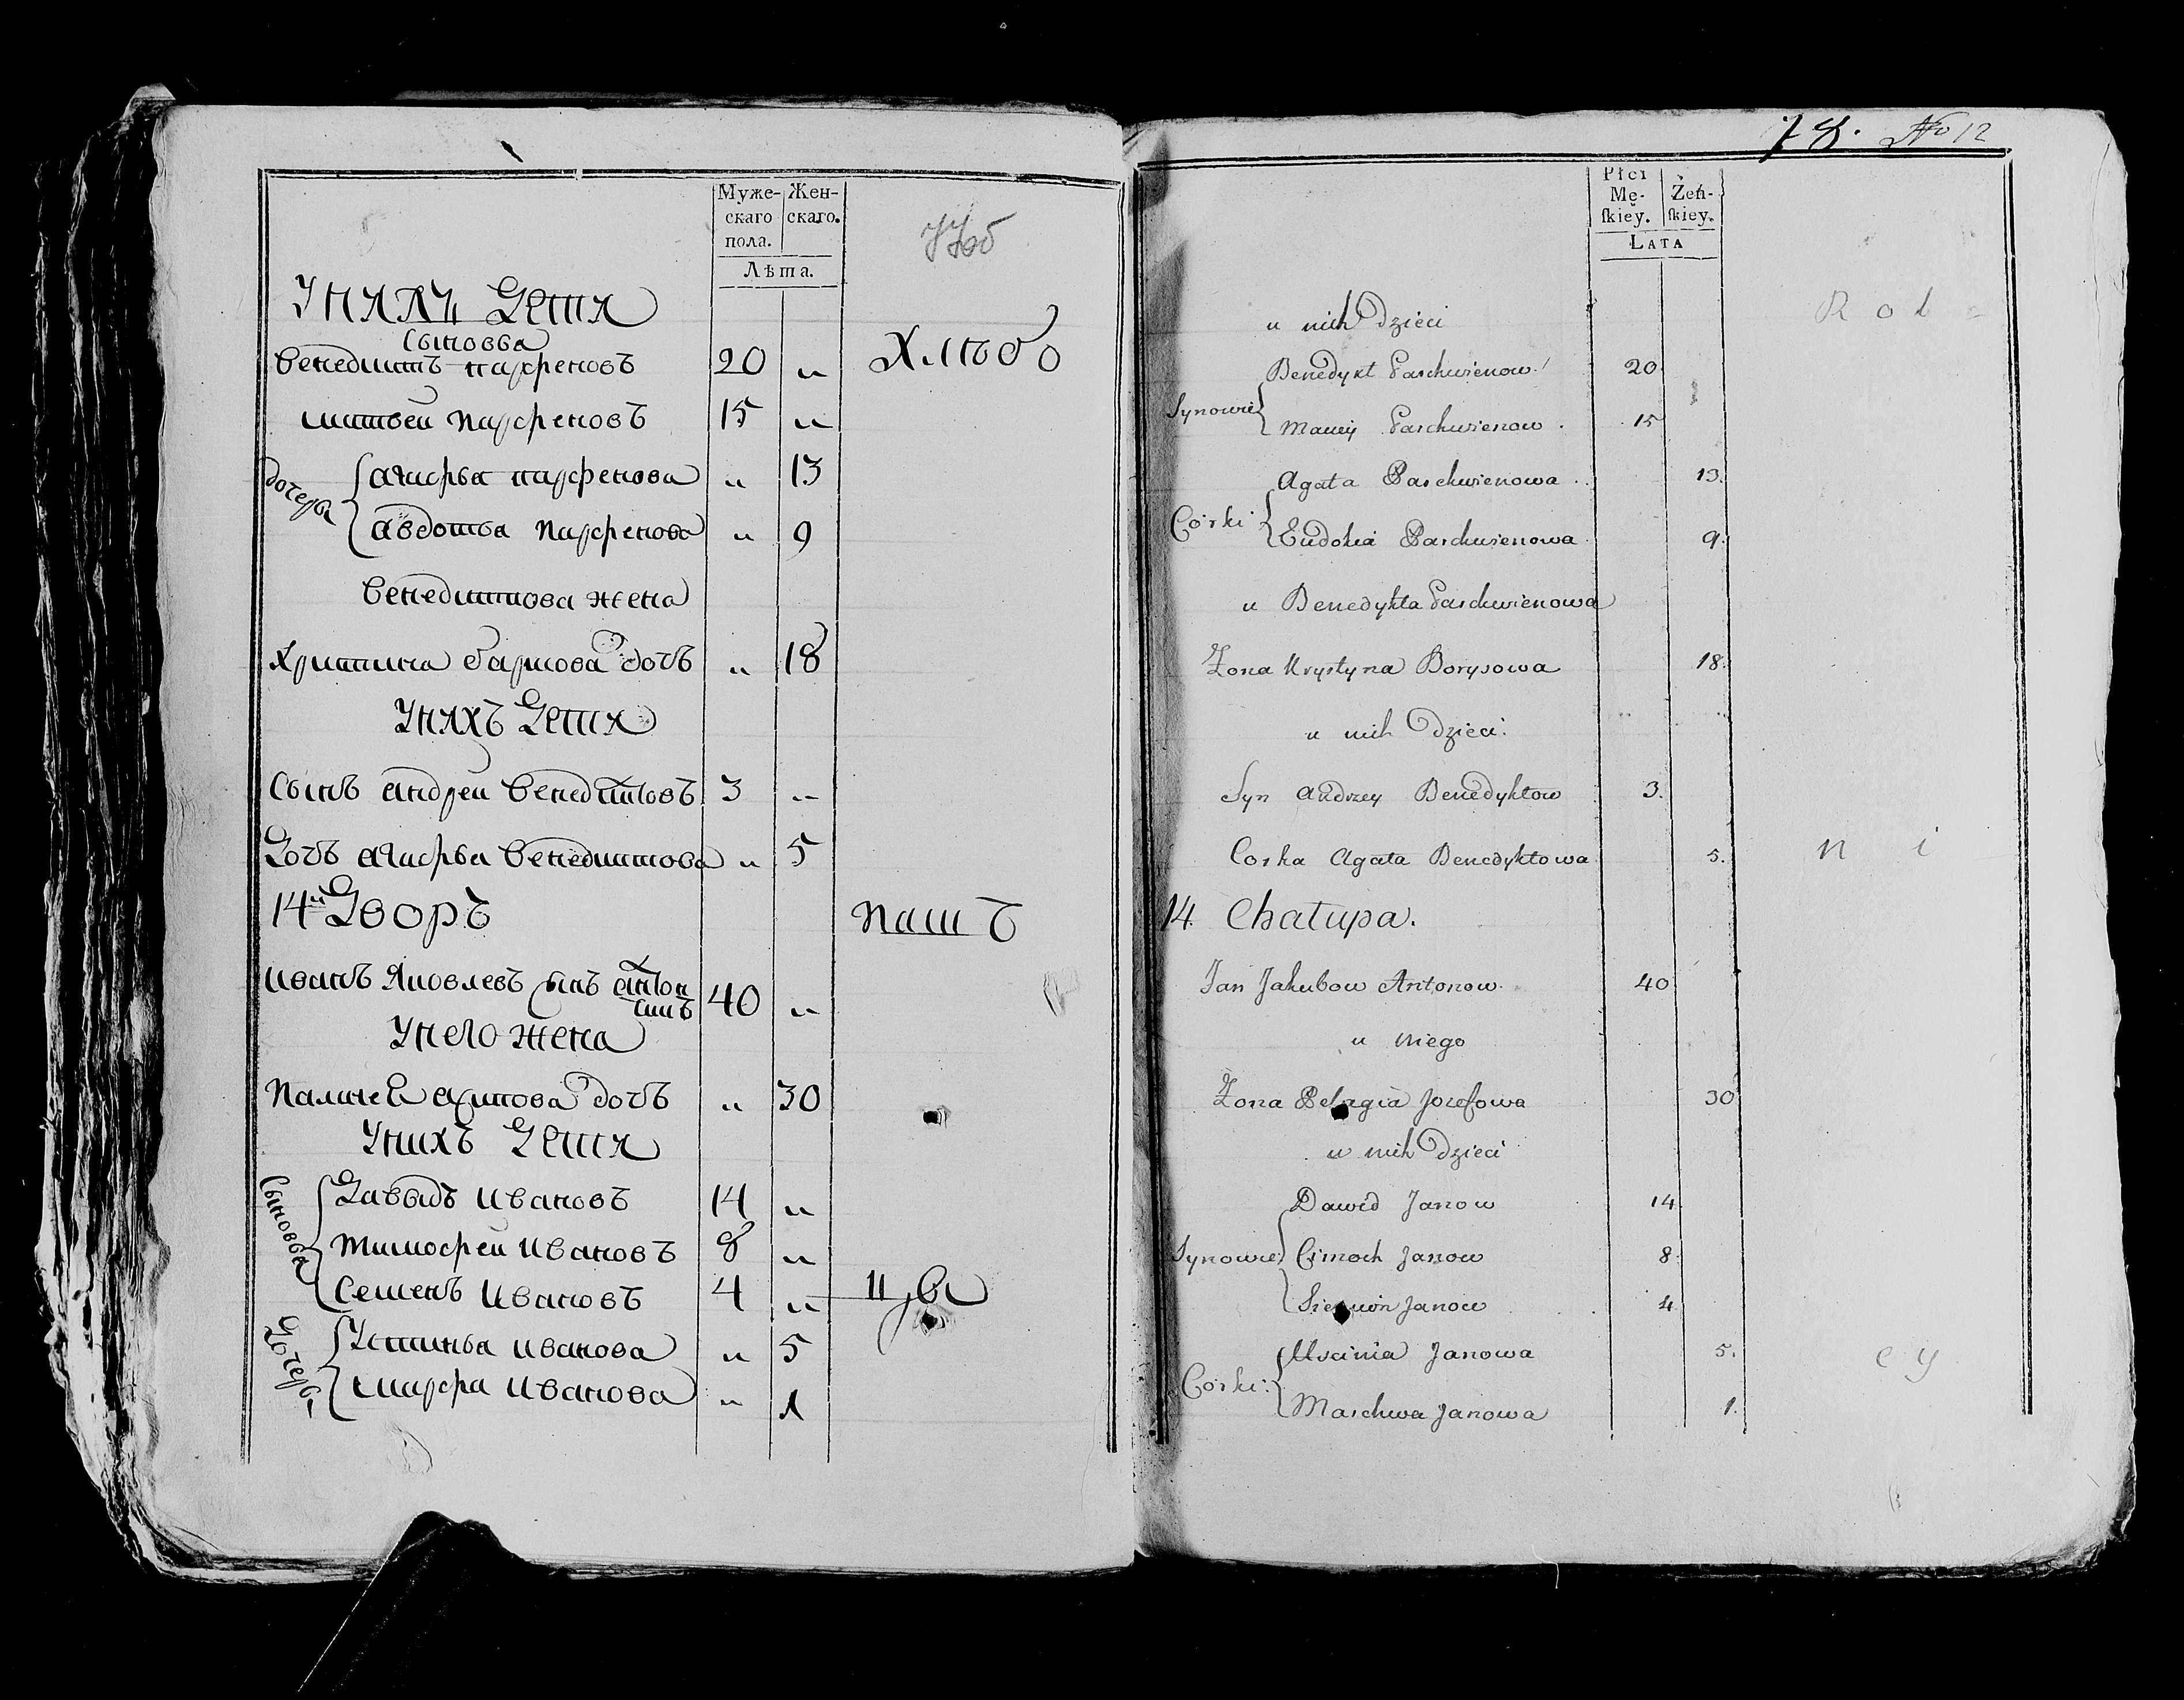 Муже-
скаго
пола.
Жен-
скаго.
Лѣта.
Унихъ Дети
Сыновья
Венедиктъ парфеновъ 20 „
матвей парфеновъ 15 „
Хлѣбо
дочери
агафья парфенова „ 13
авдотья парфенова „ 9
Венедиктова жена
Христина борисова дочь „ 18
Унихъ Дети
Сынъ андрей Венедиктовъ 3 „
Дочь агафья Венедиктова „ 5
14й Дворъ
пашъ
иванъ Яковлевъ сынъ антон 40 „
Унего жена
палагея осипова дочь „ 30
Унихъ Дети
Сыновья
Давыдъ ивановъ 14 „
тимофеи ивановъ 8 „
Семенъ ивановъ 4 „
цы
Дочери
Устинья иванова „ 5
марфа иванова „ 1
78. No 12
Płci
Mę-
skiey.
Żeń-
skiey.
LATA
u nich Dzieci
Rol-
Synowie
Benedykt Parchwienow 20
Maciey Parchwienow. 15
Corki
Agata Parchwienowa. 13.
Eudokia Parchwienowa 9.
u Benedykta Parchwienowa
Żona Krystyna Borysowa 18.
u nich Dzieci.
Syn Andrzey Benedyktow 3.
Corka Agata Benedyktowa 5.
n i
14. Chałupa.
Jan Jakubow Antonow. 40
u niego
Żona Pelagia Jozefowa 30
u nich Dzieci
Synowie
Dawid Janow 14
Cimoch Janow 8.
Siemion Janow 4
Corki
Uscinia Janowa 5.
Marchwa Janowa 1.
e y